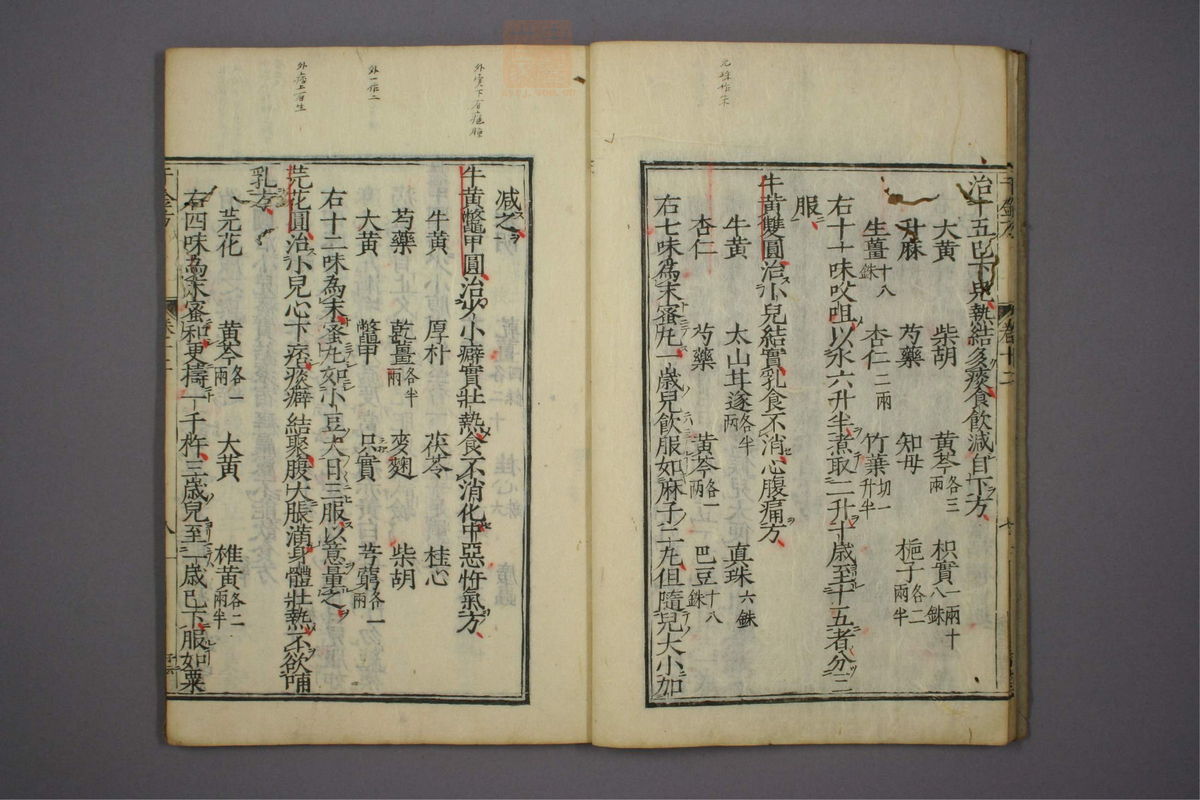 治十五已下兒熱結多痰食飲減自下方
大黃 柴胡 黃芩各三兩 枳實一兩十八銖
升麻 芍藥 知母 梔子各二兩半
生薑十八銖 杏仁二兩 竹葉切一升半
右十一味㕮咀以水六升半煮取二升十歲至十五者分三
服
牛黃雙圓治小兒結實乳食不消心腹痛方
牛黃 太山甘遂各半兩 真珠六銖
杏仁 芍藥 黃芩各一兩 巴豆十八銖
右七味為末蜜丸一歲兒飲服如麻子二丸但隨兒大小加
減之
牛黃鱉甲圓治少小癖實壯熱食不消化中惡忤氣方
牛黃 厚朴 茯苓 桂心
芍藥 乾薑各半兩 麥麴 柴胡
大黃 鱉甲 只實 芎藭各一兩
右十二味為末蜜丸如小豆大日三服以意量之
芫花圓治小兒心下痞痰癖結聚腹大脹滿身體壯熱不欲哺
乳方
芫花 黃芩各一兩 大黃 雄黃各二兩半
右四味為末蜜和更擣一千杵三歲兒至一歲已下服如粟
外實下有瘧腫
外一作二
外痞上有生